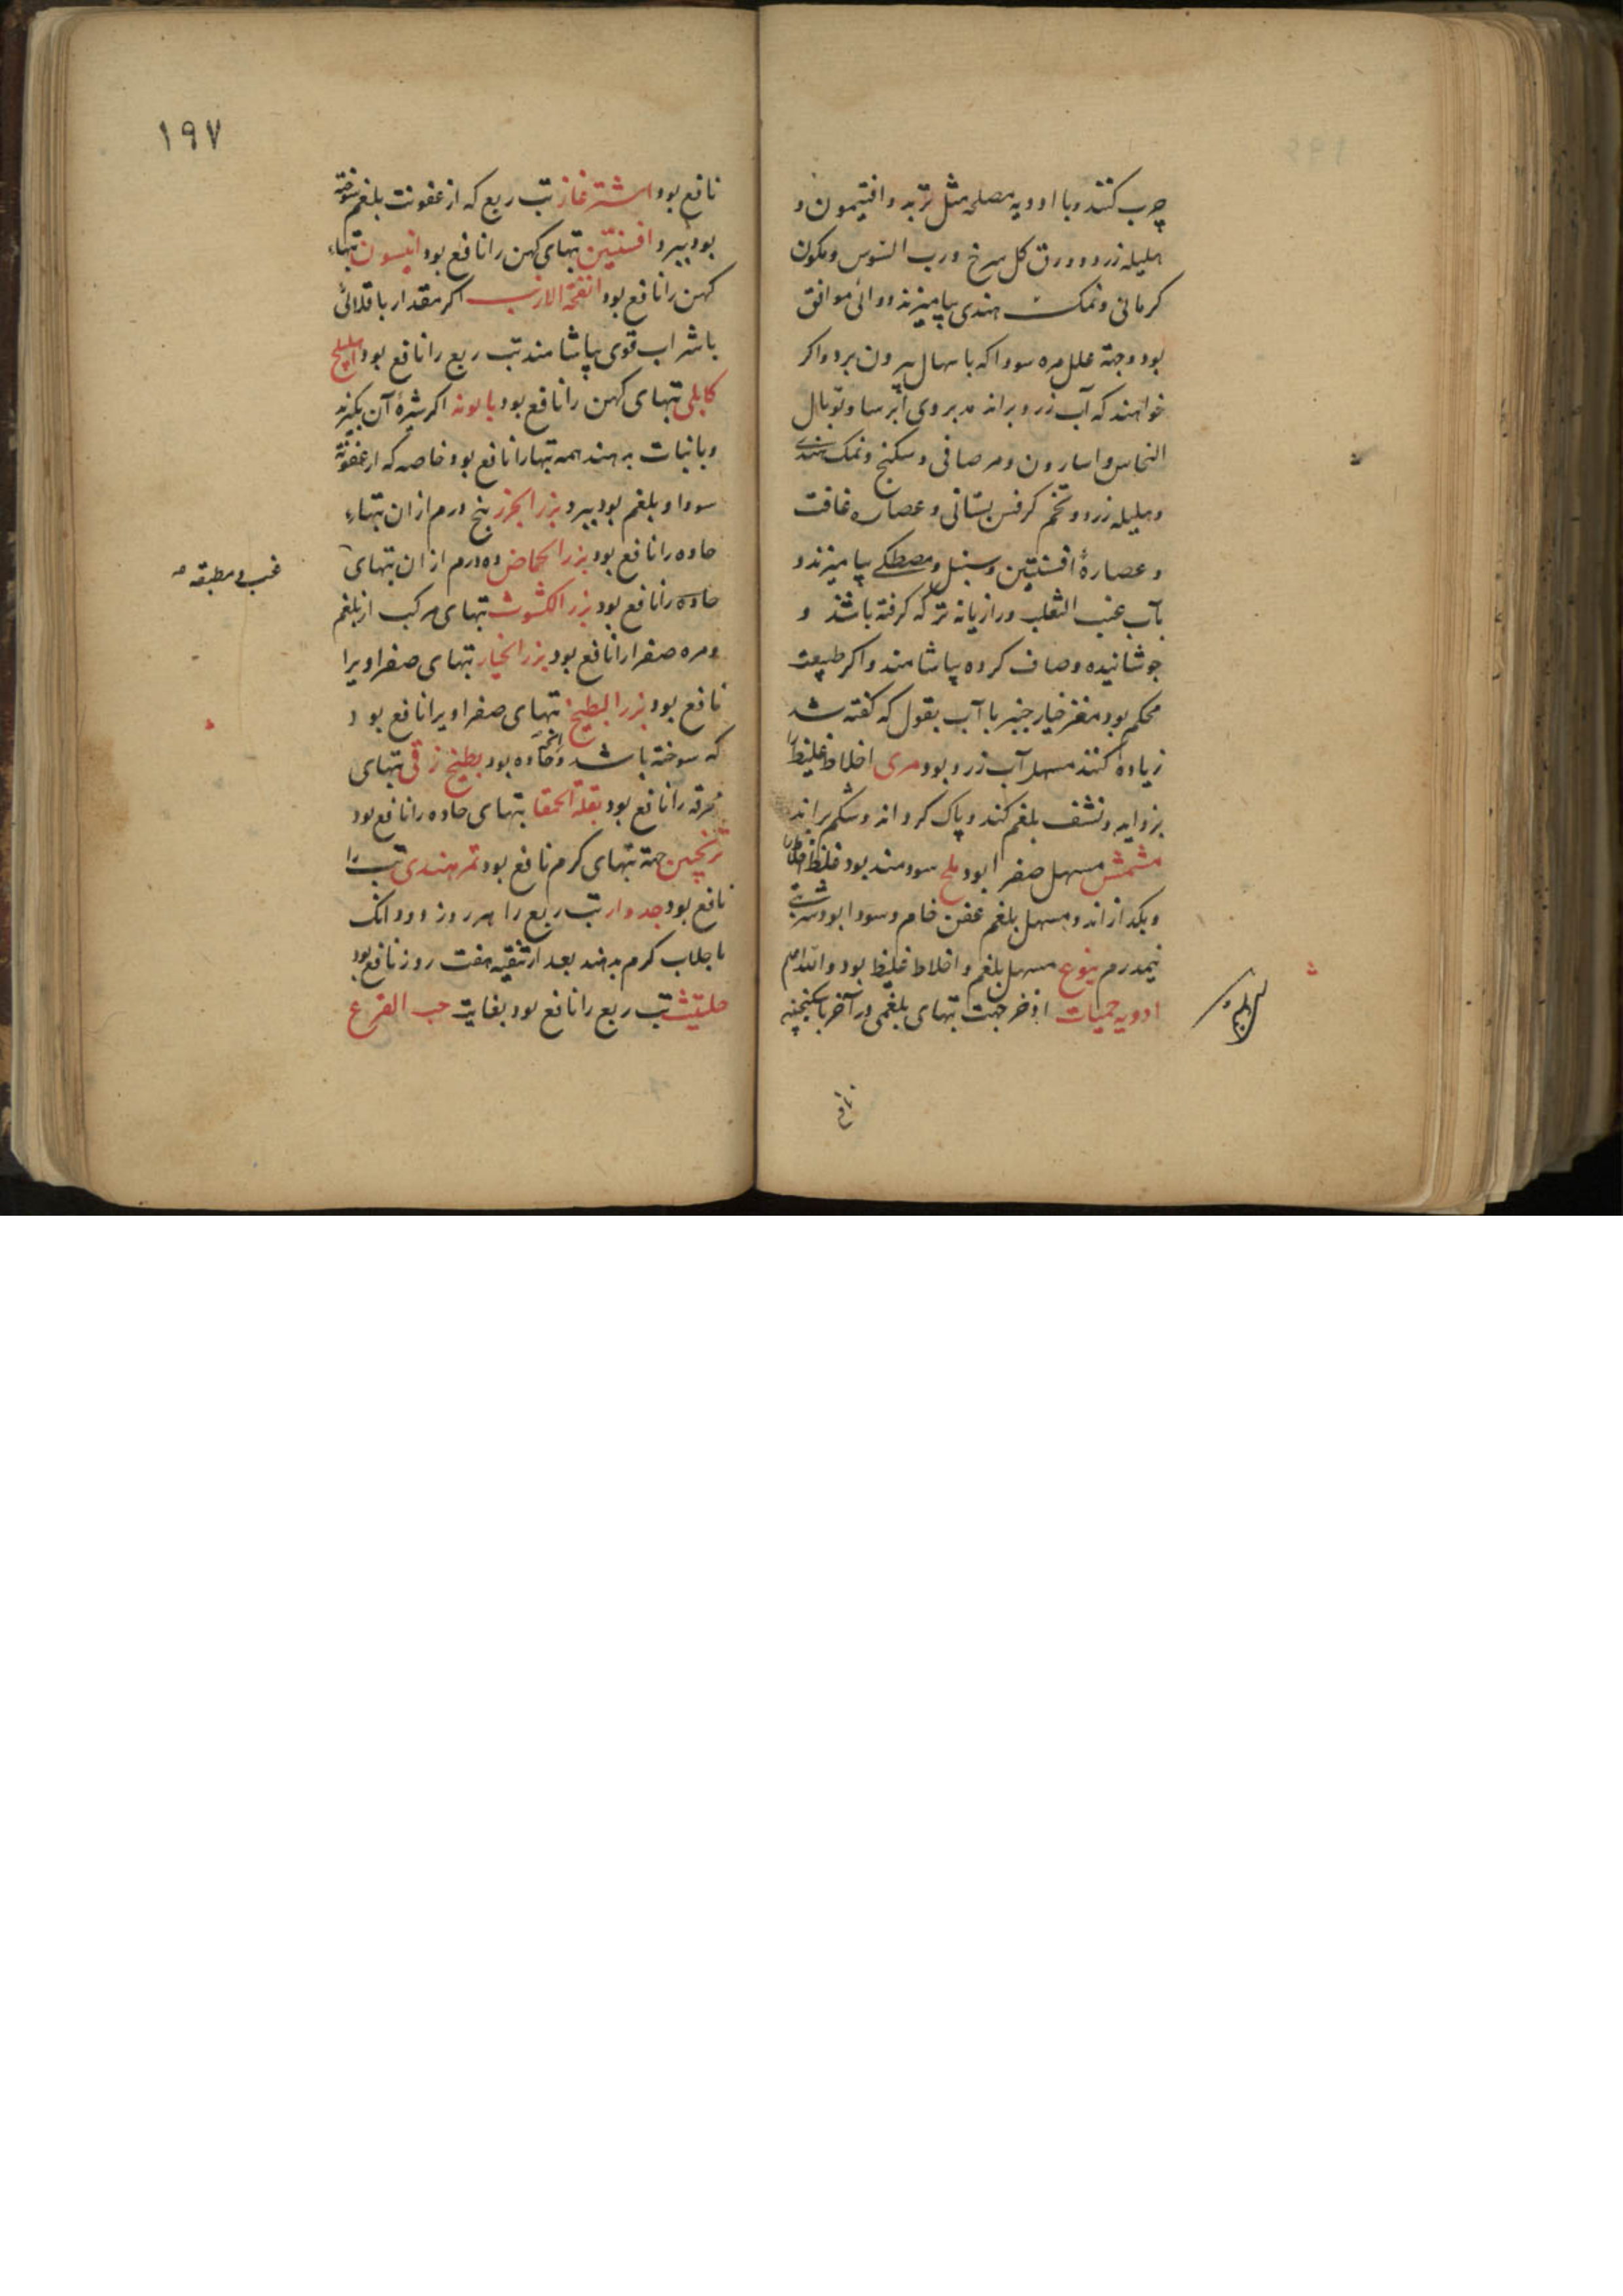 چرب کنند و با ادویه مصلحه مثل تربد و افتیمون و
هلیله زرد و ورق کل سرخ و رب السوس و کمون
کرمانی و نمک هندی بیامیزند دوائی موافق
بود و جهة علل مره سودا که باسهال بیرون برد و اکر
خواهند که آب زرد براند مدبر وی ایرسا و توبال
النحاس و اسارون و مر صافی و سکنج و نمک هندی
و هلیله زرد و تخم کرفس بستانی و عصاره غافت
و عصارهٔ افسنتین و سنبل و مصطکی بیامیزند و
بآب عنب الثعلب و رازیانه تر که کرفته باشند و
جوشانیده و صاف کرده بیاشامند و اکر طبیعت
محکم بود مغز خیار چنبر با آب بقول که کفته شد
زیاده کنند مسهل آب زرد بود مری اخلاط غلیظ را
بزداید و نشف بلغم کند و پاک کرداند و شکم براند
مشمش مسهل صفرا بود ملح سودمند بود غلظ اخلاط را
و بکدازاند و مسهل بلغم عفن خام و سودا بود شربتی
نیمدرم ینوع مسهل بلغم و اخلاط غلیظ بود والله اعلم
ادویه حمیات اذخر جهت تبهای بلغمی در آخر با سکنجبین
نافع
١٩٧
نافع بود اشترغاز تب ربع که از عفونت بلغم سوخته
بود ببرد افسنتین تبهای کهن را نافع بود انیسون تبهاء
کهن را نافع بود انفحة الارنب اکر مقدار باقلائی
با شراب قوی بیاشامند تب ربع را نافع بود اهلیلج
کابلی تبهای کهن را نافع بود بابونه اکر شیرهٔ آن بکیرند
و با نبات بدهند همه تبها را نافع بود خاصه که از عفونة
سودا و بلغم بود ببرد بزر الجزر پنج درم از ان تبهاء
حاده را نافع بود بزر الحماض ده درم از ان تبهای
غب و مطبقه
حاده را نافع بود بزر الکشوث تبهای مرکب از بلغم
و مره صفرا را نافع بود بزر الخیار تبهای صفراویرا
نافع بود بزر البطیخ تبهای صفراویرا نافع بود
که سوخته باشد و حاده بود بطیخ زقی تبهای
محرقه را نافع بود بقلة الحمقا تبهای حاده را نافع بود
ترنجبین جهة تبهای کرم نافع بود تمر هندی تب را
نافع بود جدوار تب ربع را هر روز دو دانک
با جلاب کرم بدهند بعد از تنقیه هفت روز نافع بود
حلتیث تب ربع را نافع بود بغایت حب القرع